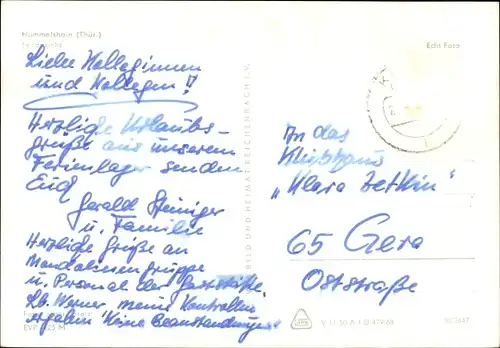 Hummelshain (Thür.)
Echt Foto
Liebe Kolleginnen
und Kollegen!
Herzliche Urlaubs-
grüße aus unserem
Ferienlager senden
Euch
Gerald Steiniger
u. Familie
Herzliche Grüße an
u. Personal der Gaststätte.
Lb. Werner, meine Kontrollen
ergaben "Keine Beanstandungen"
BILD UND HEIMAT REICHENBACH I. V.
An das
Klubhaus
"Klara Zetkin"
65 Gera
Oststraße